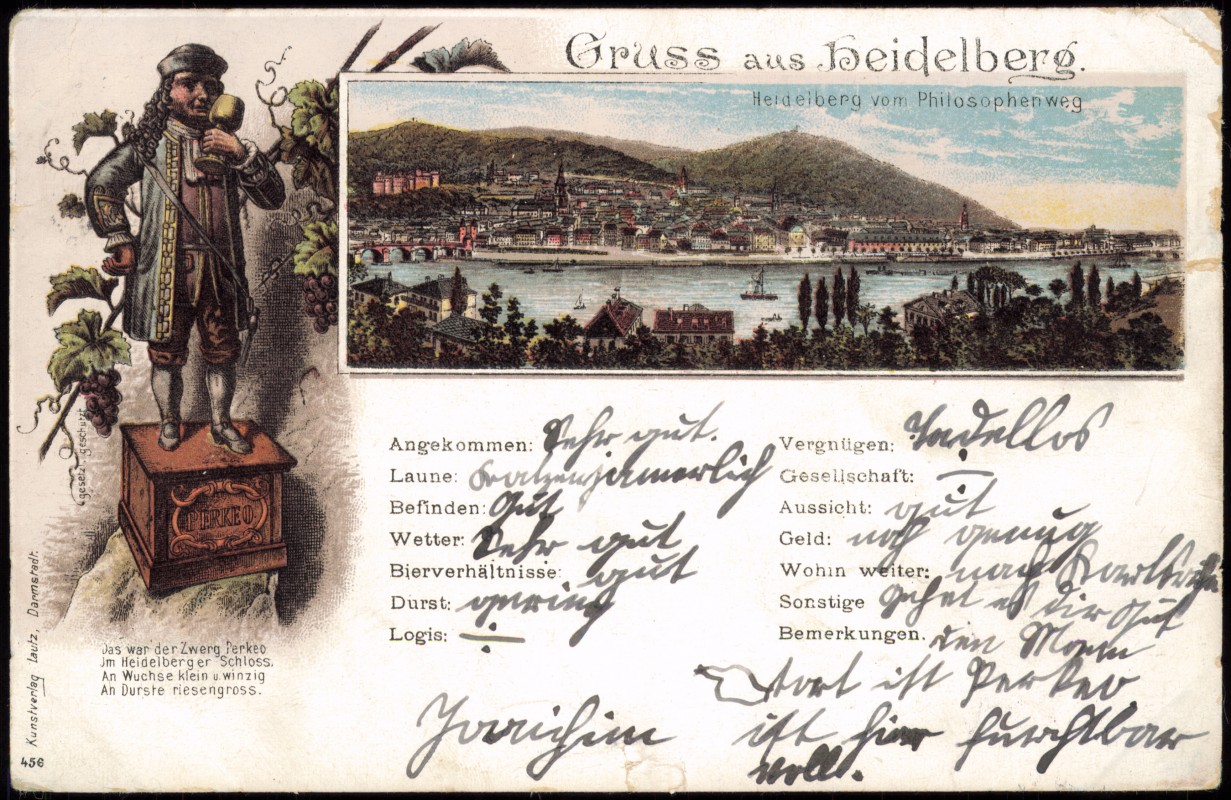 Gruss aus Heidelberg.
Heidelberg vom Philosophenweg
gesetzl. geschützt
PERKEO
Das war der Zwerg Perkeo
Jm Heidelberger Schloss,
An Wuchse klein u. winzig
An Durste riesengross.
Kunstverlag Lautz, Darmstadt.
456
Angekommen: Sehr gut.
Laune:
Befinden: Gut
Wetter: Sehr gut
Bierverhältnisse: gut
Durst: gering
Logis: ÷
Vergnügen: Tadellos
Gesellschaft: ÷
Aussicht: gut
Geld: noch genug
Wohin weiter: nach
Sonstige gehet es dir Gut
Bemerkungen. den
dort ist Perkeo
ist hier furchtbar
voll.
Joachim